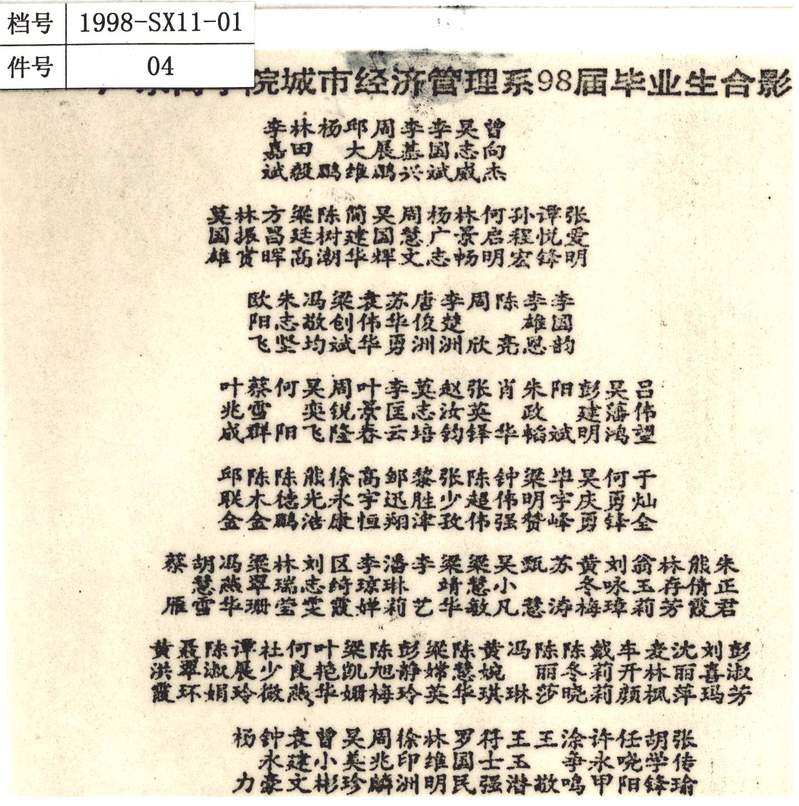 档号 1998-SX11-01
件号 04
院城市经济管理系98届毕业生合影
李嘉斌 林田毅 杨鹏 邱大维 周展鹏 李基兴 李国斌 吴志威 曾向杰
莫国雄 林振贵 方昌晖 梁廷高 陈树潮 简建华 吴国辉 周慧文 杨广志 林景畅 何启明 孙程宏 谭悦锋 张爱明
欧阳飞 朱志坚 冯敬均 梁创斌 袁伟华 苏华勇 唐俊洲 李楚洲 周欣 陈亮 李雄恩 李国韵
叶兆成 蔡雪群 何阳 吴奕飞 周锐隆 叶景春 李匡云 莫志培 赵汝钧 张英铎 肖华 朱政韬 阳斌 彭建明 吴藩鸿 吕伟望
邱联金 陈木金 陈德鹏 熊光浩 徐永康 高宇恒 邹迅翔 黎胜津 张少孜 陈超伟 钟伟强 梁明赞 毕宇峰 吴庆勇 何勇锋 于灿全
蔡雁 胡慧雪 冯燕华 梁翠珊 林瑞莹 刘志雯 区绮霞 李琼婵 潘琳莉 李艺 梁靖华 梁慧敏 吴小凡 甄慧 苏涛 黄冬梅 刘咏璋 翁玉莉 林存芳 熊倩霞 朱正君
黄洪霞 聂翠环 陈淑娟 谭展玲 杜少微 何良燕 叶艳华 梁凯姗 陈旭梅 彭静玲 梁嫦英 陈慧华 黄婉琪 冯琳 陈丽莎 陈冬晓 戴莉莉 车开颜 麦林枫 沈丽萍 刘喜玛 彭淑芳
杨力 钟永豪 袁建文 曾小彬 吴美珍 周兆麟 徐印洲 林维明 罗国民 符士强 王玉潜 王敬 涂争鸣 许永甲 任晓阳 胡学锋 张传瑜